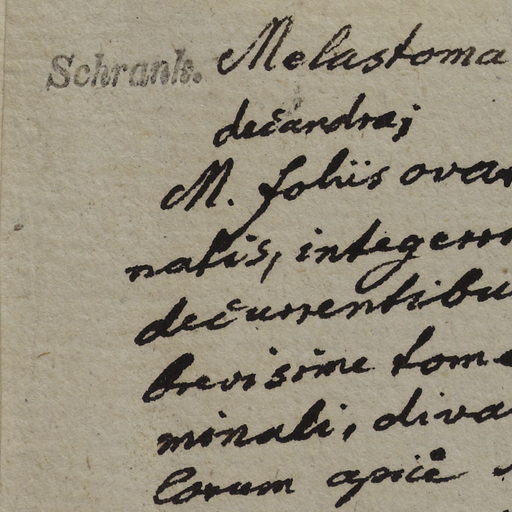 Schrank. Melastoma
decandra;
M. foliis ovat
natis, integerri
decurrentibu
brevisime tome
minali, diva
lorum apice